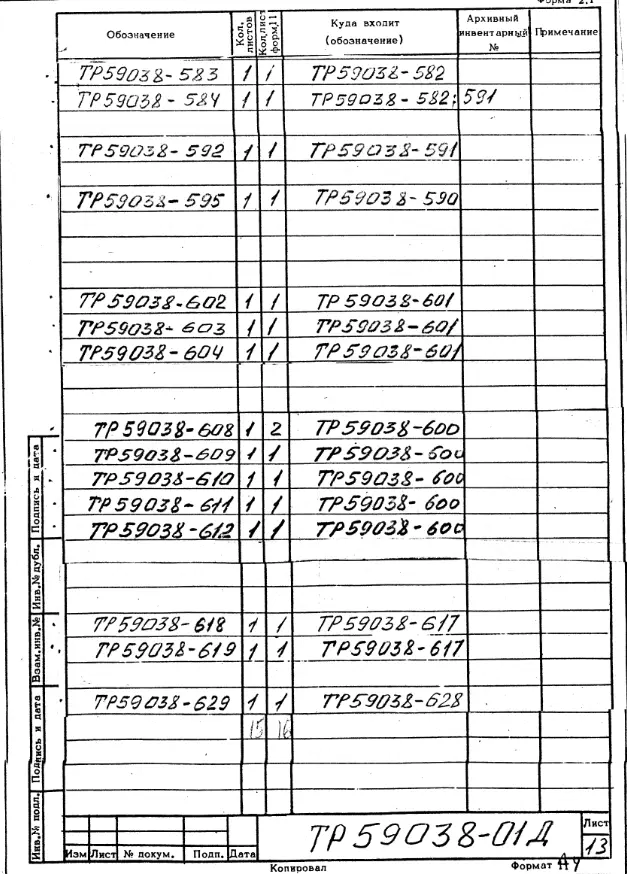 Форма 2.1
Обозначение Кол. листов Кол.лист форм.11 Куда входит (обозначение) Архивный инвентарный № Примечание
ТР59038-583 1 1 ТР59038-582
ТР59038-584 1 1 ТР59038-582; 591
ТР59038-592 1 1 ТР59038-591
ТР59038-595 1 1 ТР59038-590
ТР59038-602 1 1 ТР59038-601
ТР59038-603 1 1 ТР59038-601
ТР59038-604 1 1 ТР59038-601
ТР59038-608 1 2 ТР59038-600
ТР59038-609 1 1 ТР59038-600
ТР59038-610 1 1 ТР59038-600
ТР59038-611 1 1 ТР59038-600
ТР59038-612 1 1 ТР59038-600
ТР59038-618 1 1 ТР59038-617
ТР59038-619 1 1 ТР59038-617
ТР59038-629 1 1 ТР59038-628
15 16
Подпись и дата
Инв.№ дубл.
Взам.инв.№
Подпись и дата
Инв.№ подл.
ТР59038-01Д
Лист
13
Изм Лист № докум. Подп. Дата
Копировал Формат А4